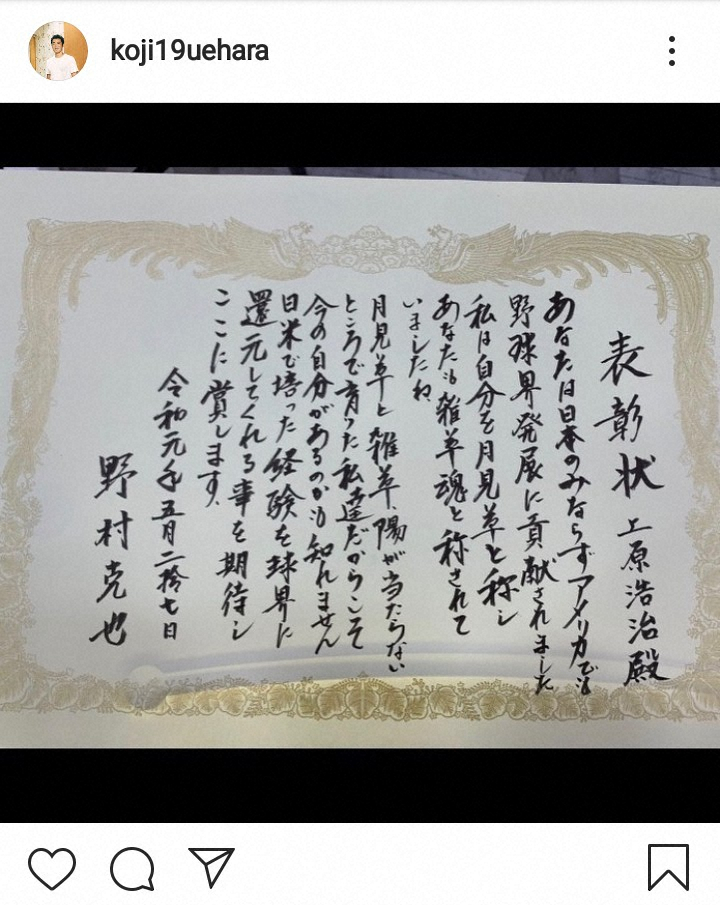 koji19uehara
表彰状
上原浩治殿
あなたは日本のみならずアメリカでも
野球界発展に貢献されました
私は自分を月見草と称し
あなたも雑草魂と称されて
いましたね、
月見草と雑草、陽が当たらない
ところで育った私達だからこそ
今の自分があるのかも知れません
日米で培った経験を球界に
還元してくれる事を期待し
ここに賞します、
令和元年五月二拾七日
野村克也